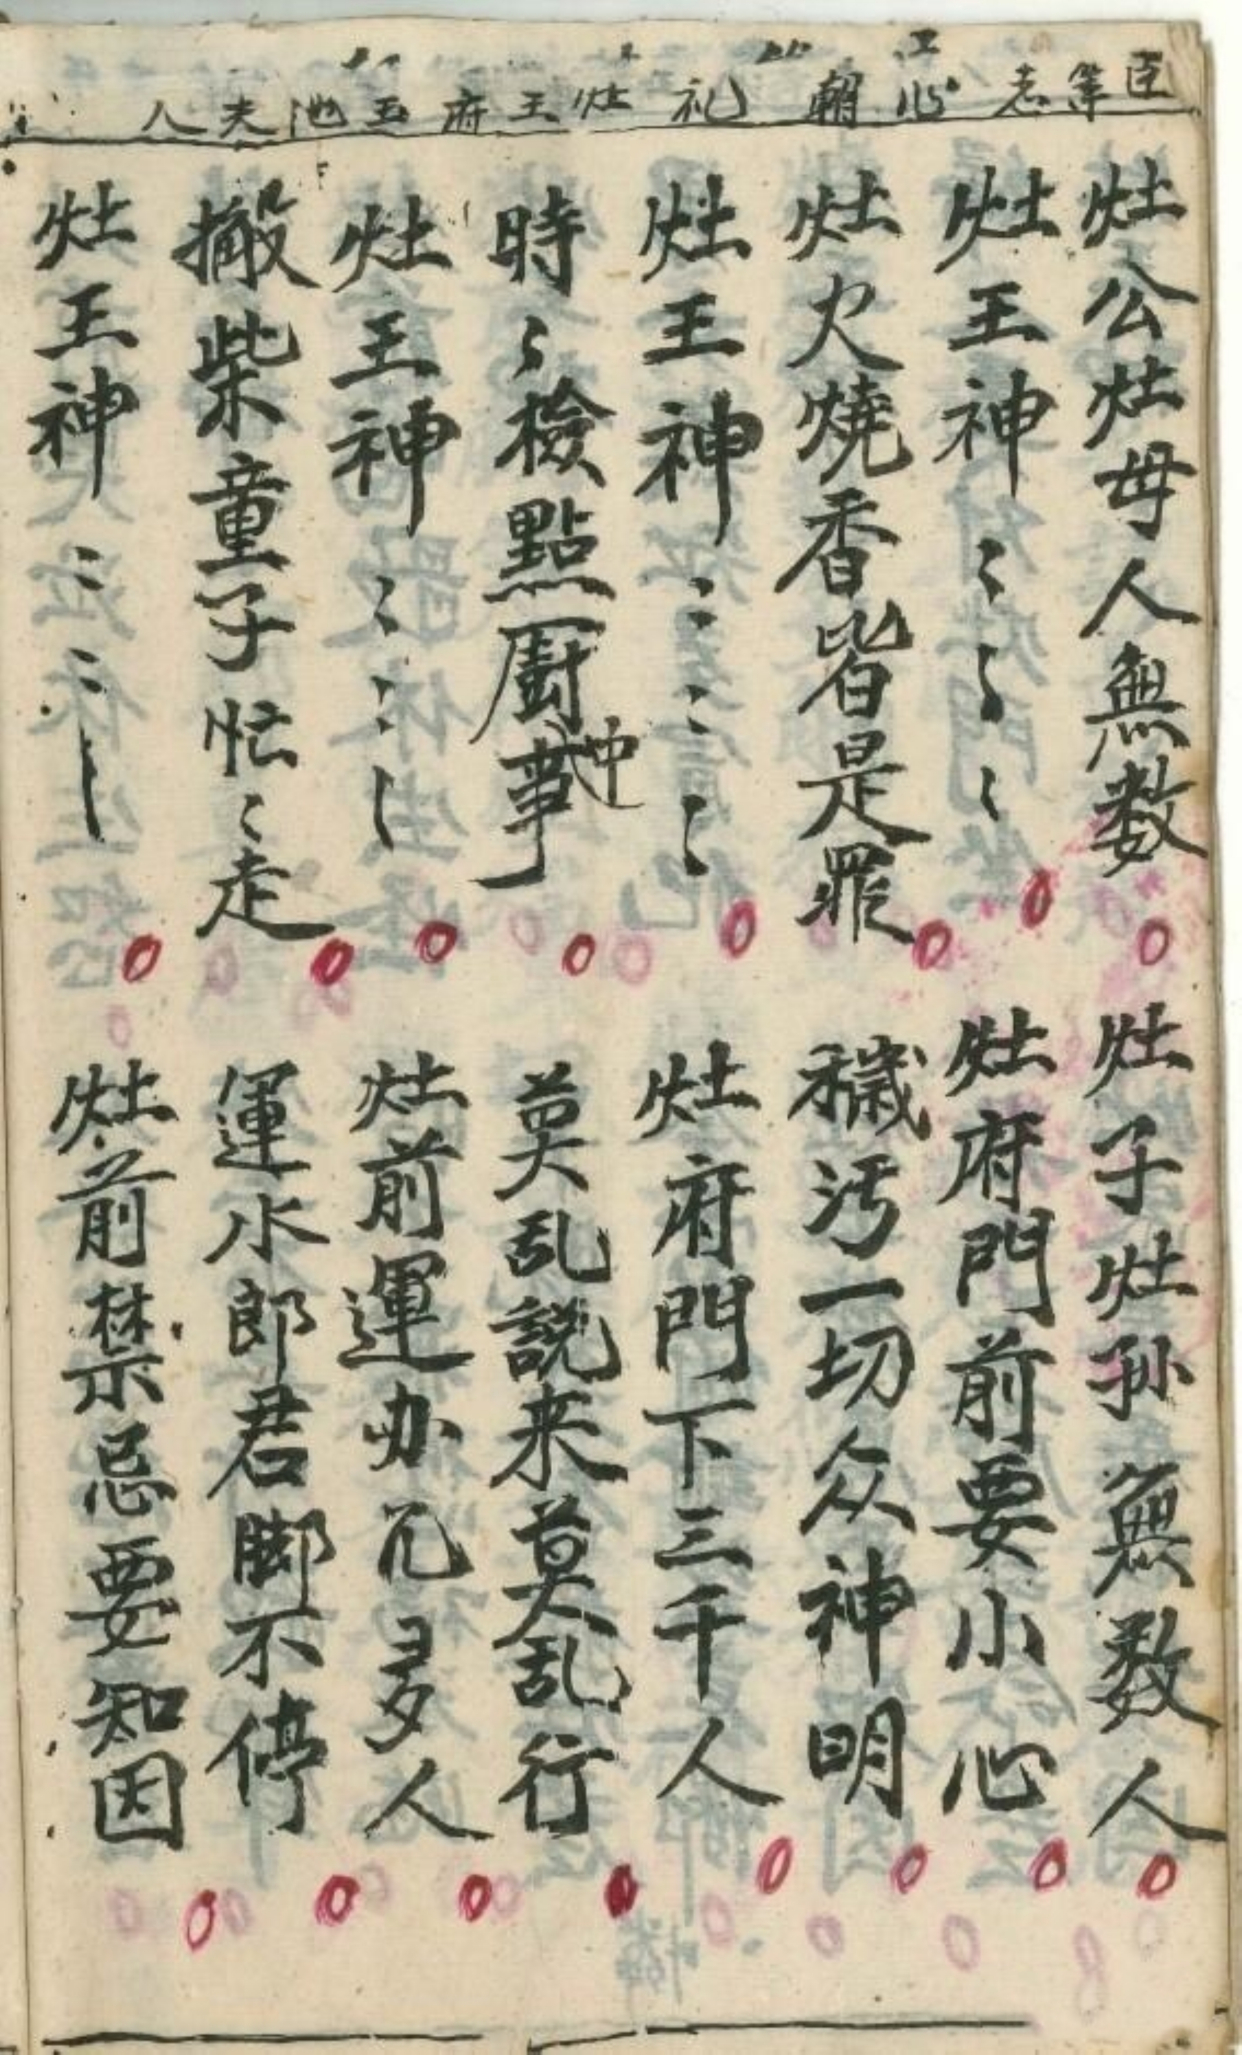 臣等志心朝礼灶王府玉池夫人
灶公灶母人無数 灶子灶孙無数人
灶王神〻〻〻 灶府門前要小心
灶火燒香皆是罪 穢污一切众神明
灶王神〻〻〻 灶府門下三千人
時〻檢點廚中事 莫乱説来莫乱行
灶王神〻〻〻 灶前運办几多人
搬柴童子忙〻走 運水郎君脚不停
灶王神〻〻〻 灶前禁忌要知因